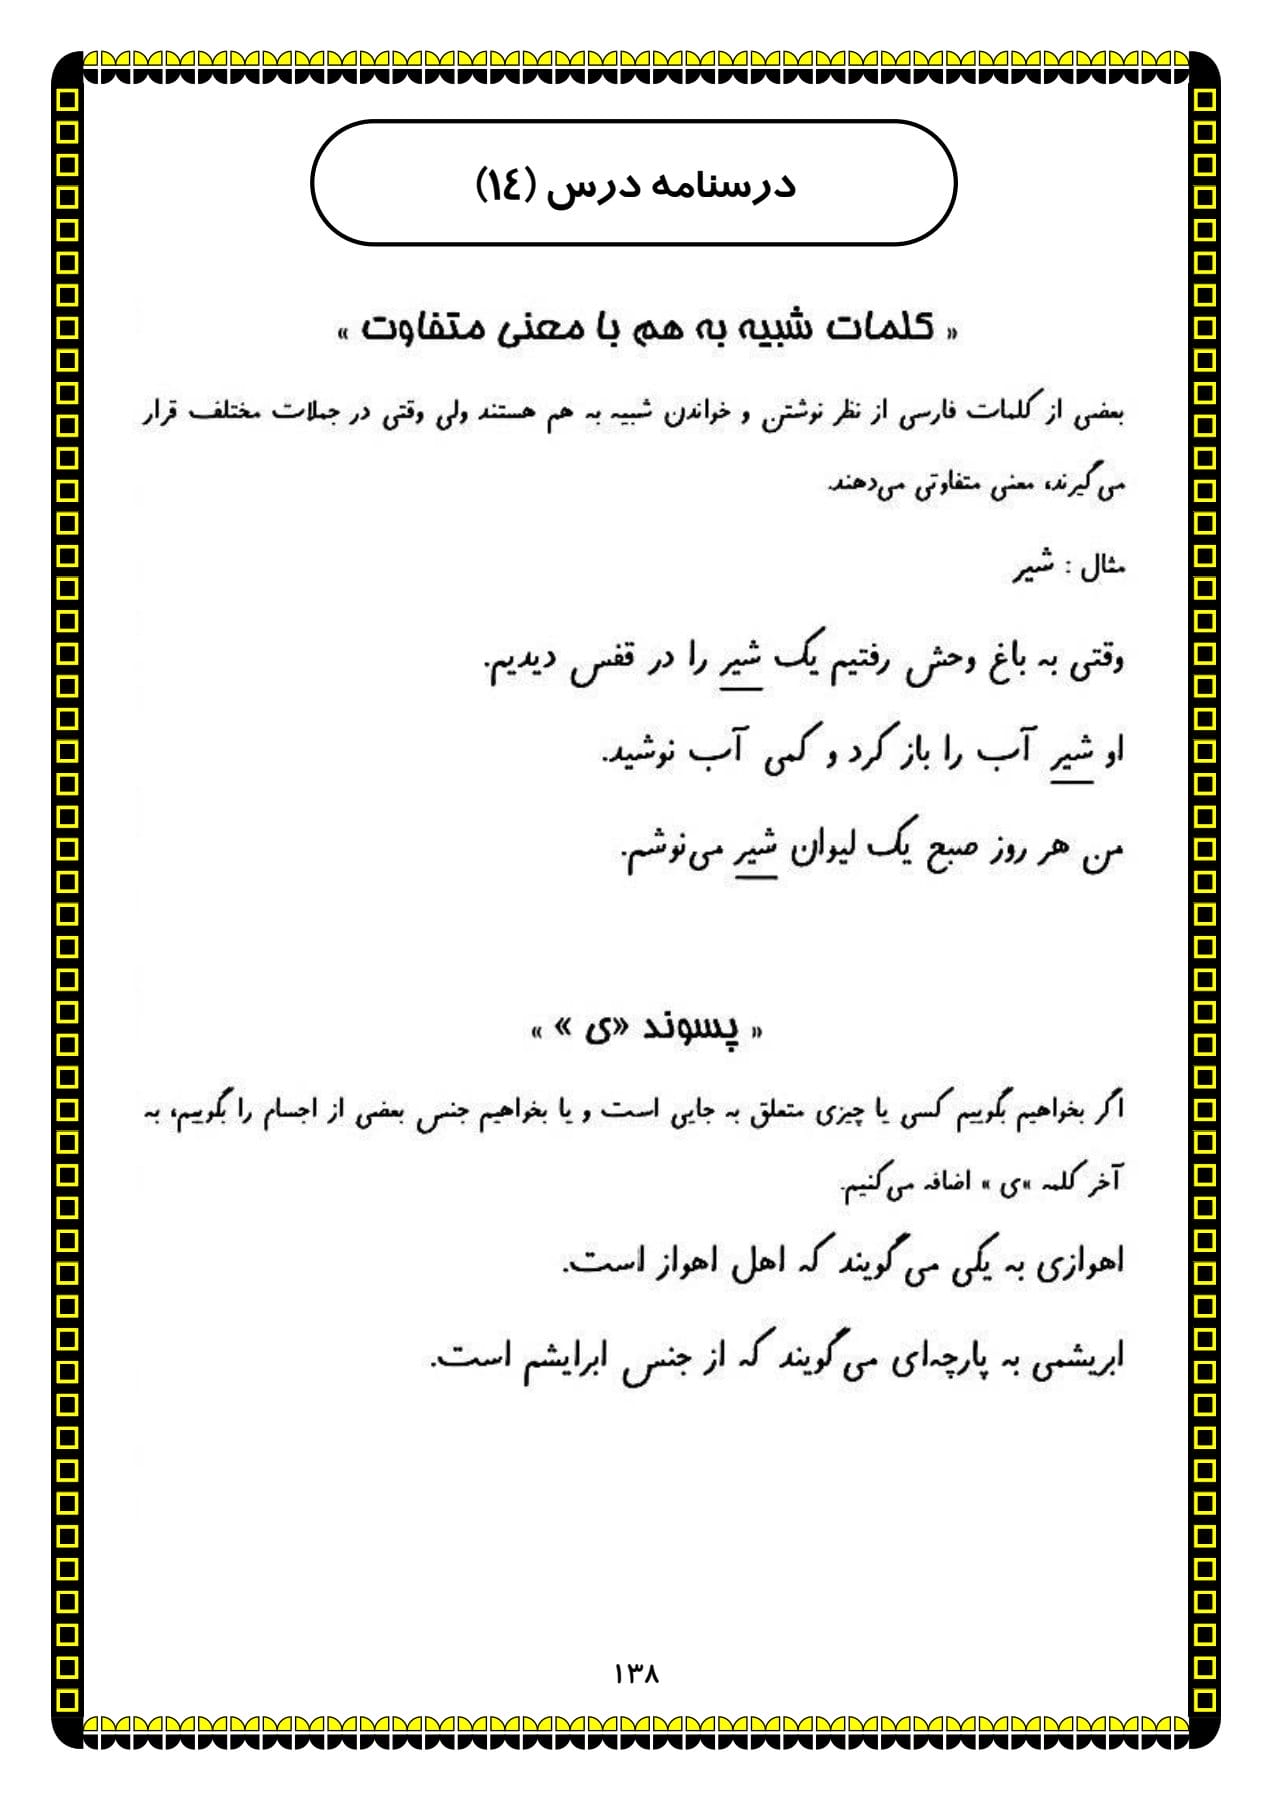 درسنامه درس (١٤)
« کلمات شبیه به هم با معنی متفاوت »
بعضی از کلمات فارسی از نظر نوشتن و خواندن شبیه به هم هستند ولی وقتی در جملات مختلف قرار
می‌گیرند، معنی متفاوتی می‌دهند.
مثال : شیر
وقتی به باغ وحش رفتیم یک شیر را در قفس دیدیم.
او شیر آب را باز کرد و کمی آب نوشید.
من هر روز صبح یک لیوان شیر می‌نوشم.
« پسوند «ی » »
اگر بخواهیم بگوییم کسی یا چیزی متعلق به جایی است و یا بخواهیم جنس بعضی از اجسام را بگوییم، به
آخر کلمه «ی » اضافه می‌کنیم.
اهوازی به یکی می‌گویند که اهل اهواز است.
ابریشمی به پارچه‌ای می‌گویند که از جنس ابرایشم است.
١٣٨